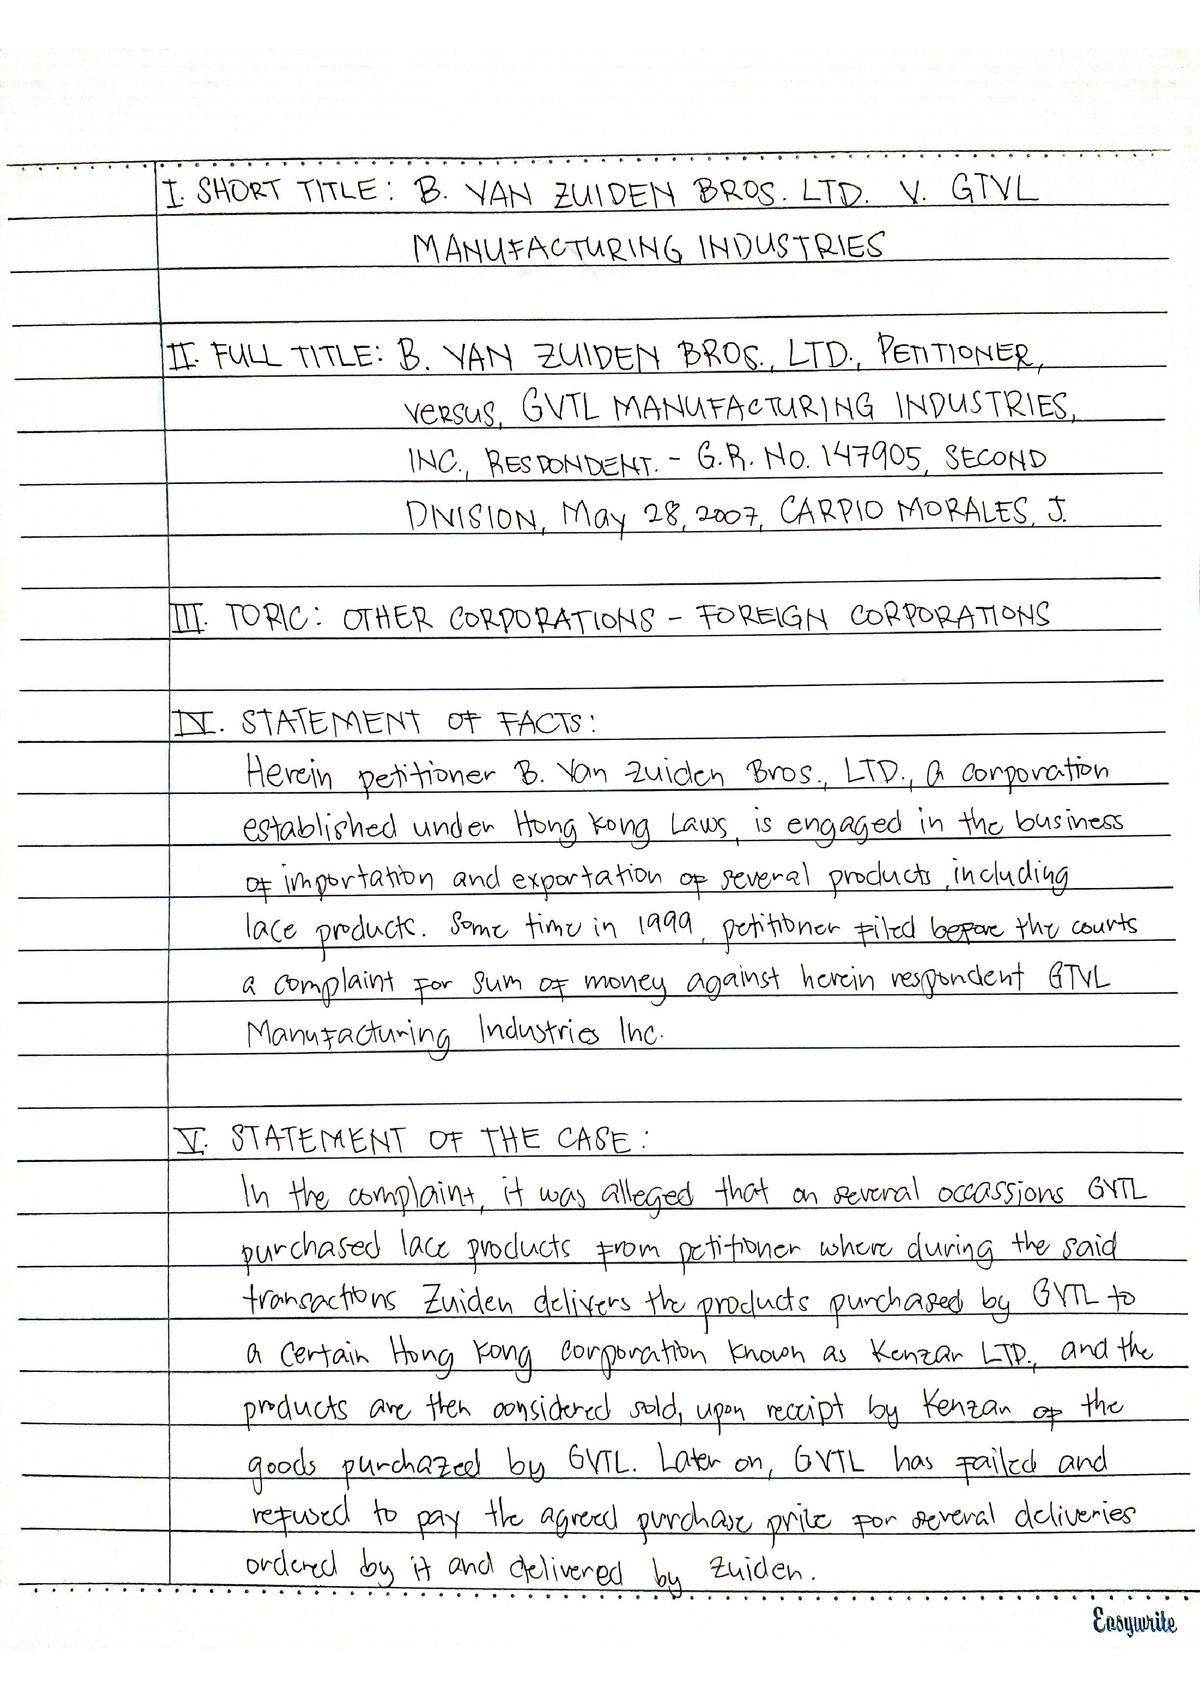 I. SHORT TITLE: B. VAN ZUIDEN BROS. LTD. V. GTVL
MANUFACTURING INDUSTRIES
II. FULL TITLE: B. VAN ZUIDEN BROS., LTD., PETITIONER,
VERSUS, GVTL MANUFACTURING INDUSTRIES,
INC., RESPONDENT. - G.R. No. 147905, SECOND
DIVISION, May 28, 2007, CARPIO MORALES, J.
III. TOPIC: OTHER CORPORATIONS - FOREIGN CORPORATIONS
IV. STATEMENT OF FACTS:
Herein petitioner B. Van Zuiden Bros., LTD., a corporation
established under Hong Kong Laws, is engaged in the business
of importation and exportation of several products, including
lace products. Some time in 1999, petitioner filed before the courts
a complaint for sum of money against herein respondent GTVL
Manufacturing Industries Inc.
V. STATEMENT OF THE CASE:
In the complaint, it was alleged that on several occassions GVTL
purchased lace products from petitioner where during the said
transactions Zuiden delivers the products purchased by GVTL to
a certain Hong Kong corporation known as Kenzar LTD., and the
products are then considered sold, upon receipt by Kenzan of the
goods purchazed by GVTL. Later on, GVTL has failed and
refused to pay the agreed purchase price for several deliveries
ordered by it and delivered by Zuiden.
Easywrite